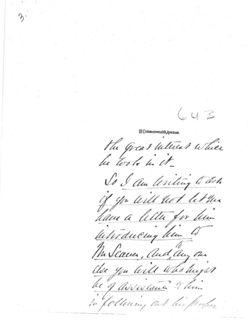 3.
643
the great interest which
he took in it.
So I am writing to ask
if you will not let me
have a letter for him
introducing him to
Mr Seaver, And, any one
else you will who might
be of assistance to him
in following out his